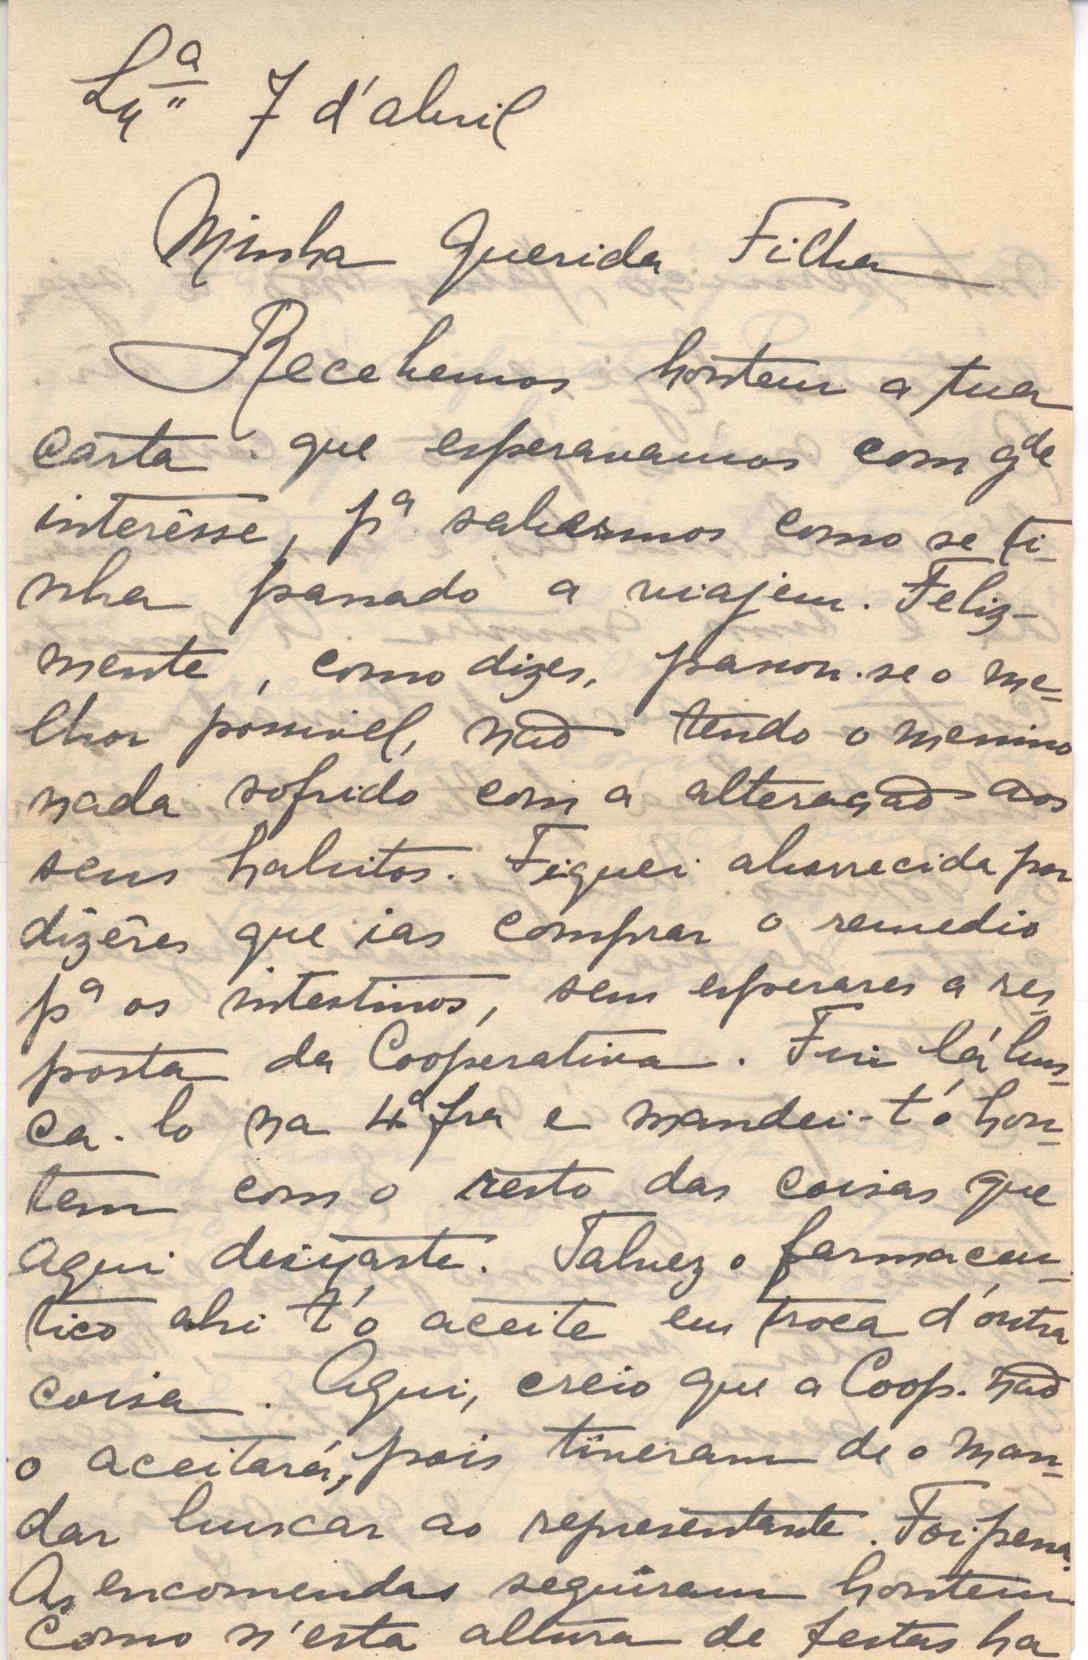 Lxª 7 d'abril
Minha Querida Filha
Recebemos hontem a tua
carta que esperavamos com gde
interêsse, pª sabermos como se ti-
nha passado a viajem. Feliz-
mente, como dizes, passou-se o me-
lhor possivel, não tendo o menino
nada sofrido com a alteração aos
seus habitos. Fiquei aborrecida por
dizêres que ias comprar o remedio
pª os intestinos, sem esperares a res-
posta da Cooperativa. Fui lá bus-
ca-lo na 4ª fra e mandei-t'o hon-
tem com o resto das coisas que
aqui deixaste. Talvez o farmaceu-
tico ahi t'o aceite em troca d'outra
coisa. Aqui, creio que a Coop. não
o aceitará, pois tiveram de o man-
dar buscar ao representante. Foi pena.
As encomendas seguiram hontem
Como n'esta altura de festas ha